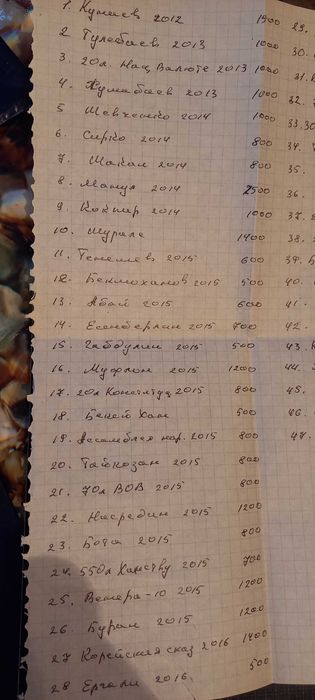 1. Кунаев 2012 1900 29.
2 Тулебаев 2013 1000 30.
3. 20л. Нац Валюте 2013 1000 31.
4. Жумабаев 2013 1000 32.
5 Шевченко 2014 1000 33. 30
6. Сирко 2014 800 34.
7. Шакал 2014 800 35.
8. Манул 2014 2500 36.
9 Кокпар 2014 1000 37.
10. Шурале 1400 38.
11. Тенешев 2015 600 39.
12. Бекмоханов 2015 500 40.
13. Абай 2015 600 41.
14. Есенберлин 2015 700 42.
15. Габдулин 2015 500 43.
16. Муфлон 2015 1200 44.
17. 20л Констітуц 2015 800 45.
18. Бекей Хан 500 46.
19. Ассамблея нар. 2015 800 47.
20. Тайказан 2015 800
21. 70л ВОВ 2015 800
22. Насредин 2015 1200
23. Бота 2015 800
24. 550л Ханству 2015 700
25. Венера-10 2015 1200
26. Буран 2015 1200
27 Корейския сказ 2016 1400
28 Ергали 2016. 500